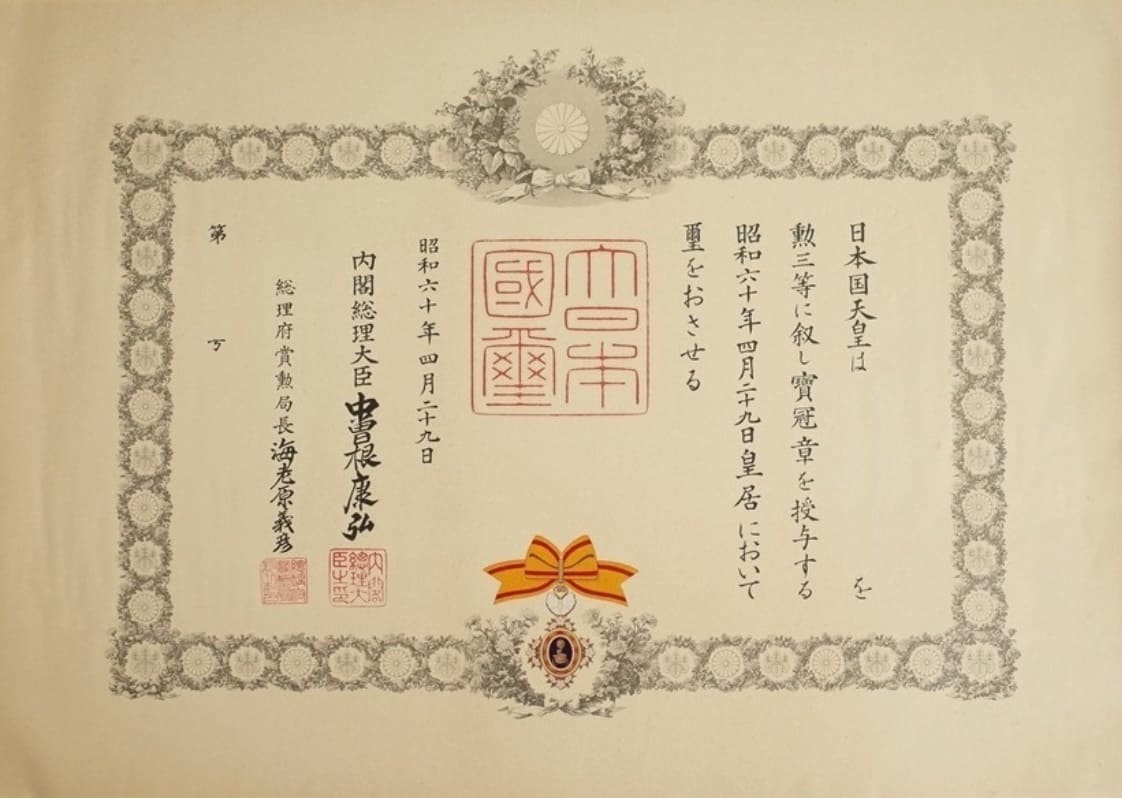 日本国天皇は　　　　　　　　を
勲三等に叙し寶冠章を授与する
昭和六十年四月二十九日皇居において
璽をおさせる
大日本
國璽
昭和六十年四月二十九日
内閣総理大臣 中曽根康弘
内閣總理大臣之印
総理府賞勲局長 海老原義彦
第　　　　号